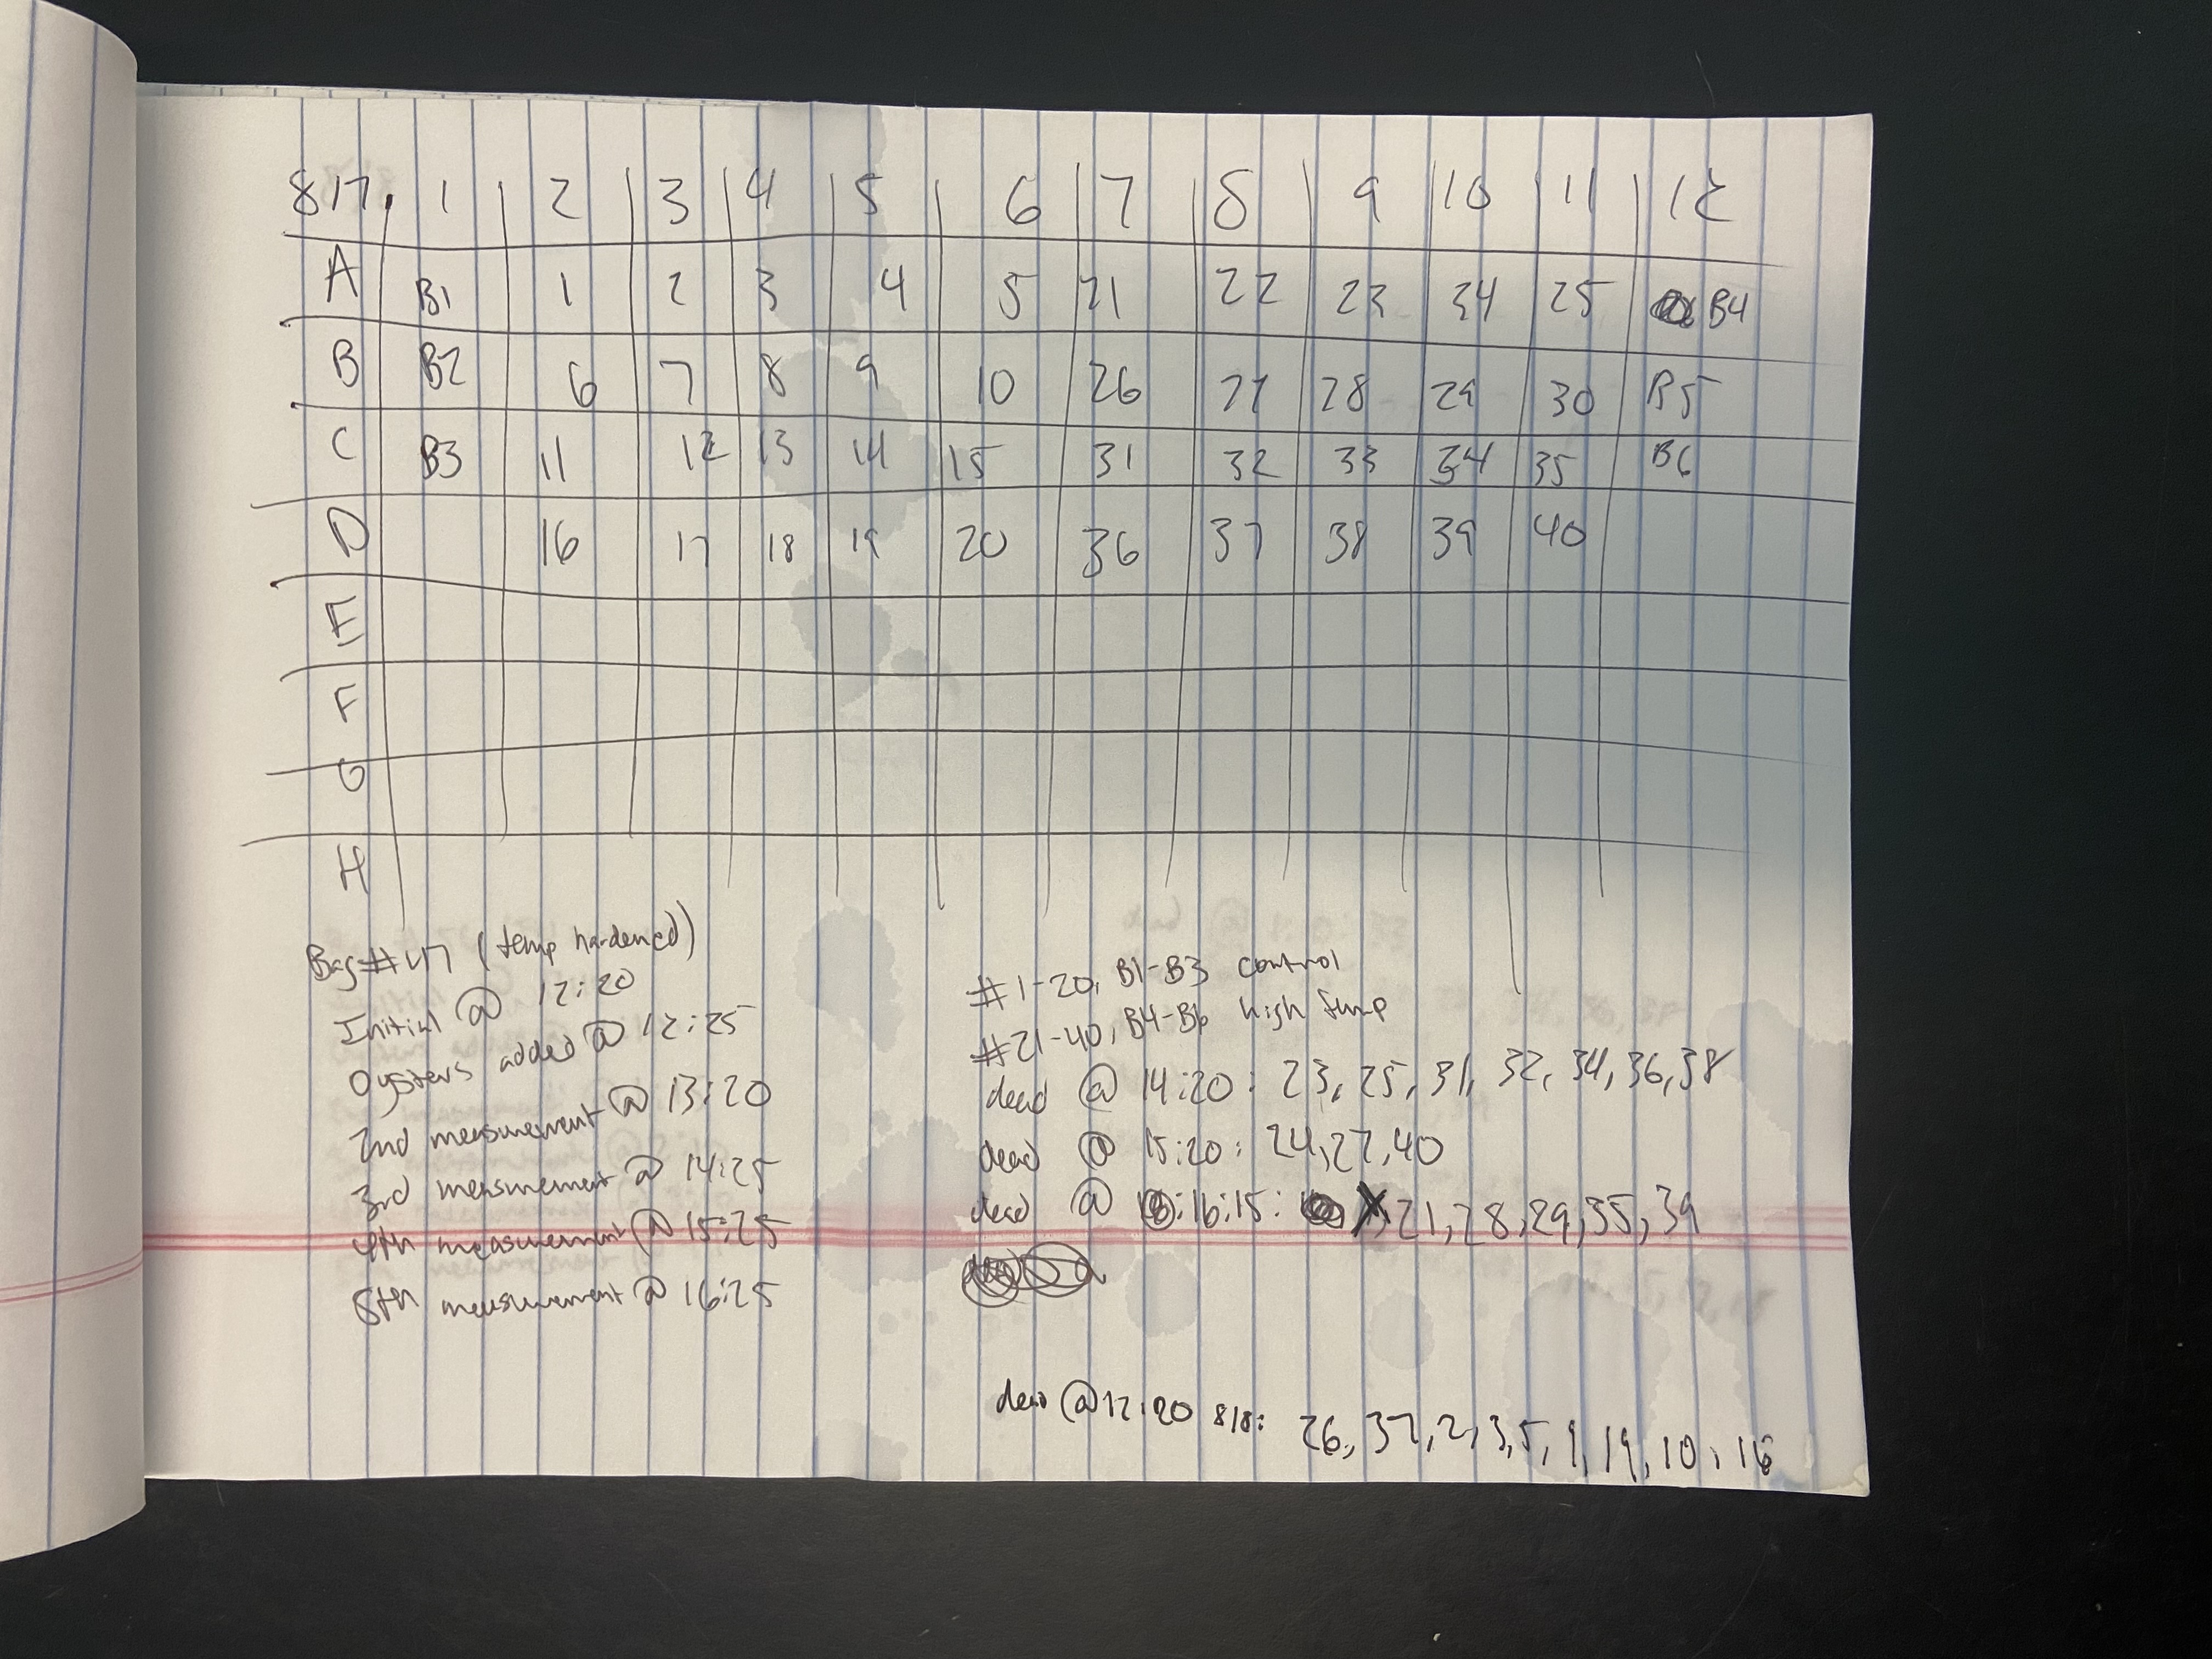 8/7 1 2 3 4 5 6 7 8 9 10 11 12
A B1 1 2 3 4 5 21 22 23 34 25 B4
B B2 6 7 8 9 10 26 27 28 29 30 B5
C B3 11 12 13 14 15 31 32 33 34 35 B6
D 16 17 18 19 20 36 37 38 39 40
E
F
G
H
Bag # (temp hardened)
Initial @ 12:20
Oysters added @ 12:25
2nd measurement @ 13:20
3rd measurement @ 14:25
4th measurement @ 15:25
5th measurement @ 16:25
#1-20, B1-B3 control
#21-40, B4-B6 high temp
dead @ 14:20: 23, 25, 31, 32, 34, 36, 38
dead @ 15:20: 24, 27, 40
dead @ 16:15: 21, 28, 29, 35, 39
dead @ 12:20 8/8: 26, 37, 2, 3, 5, 9, 19, 10, 16